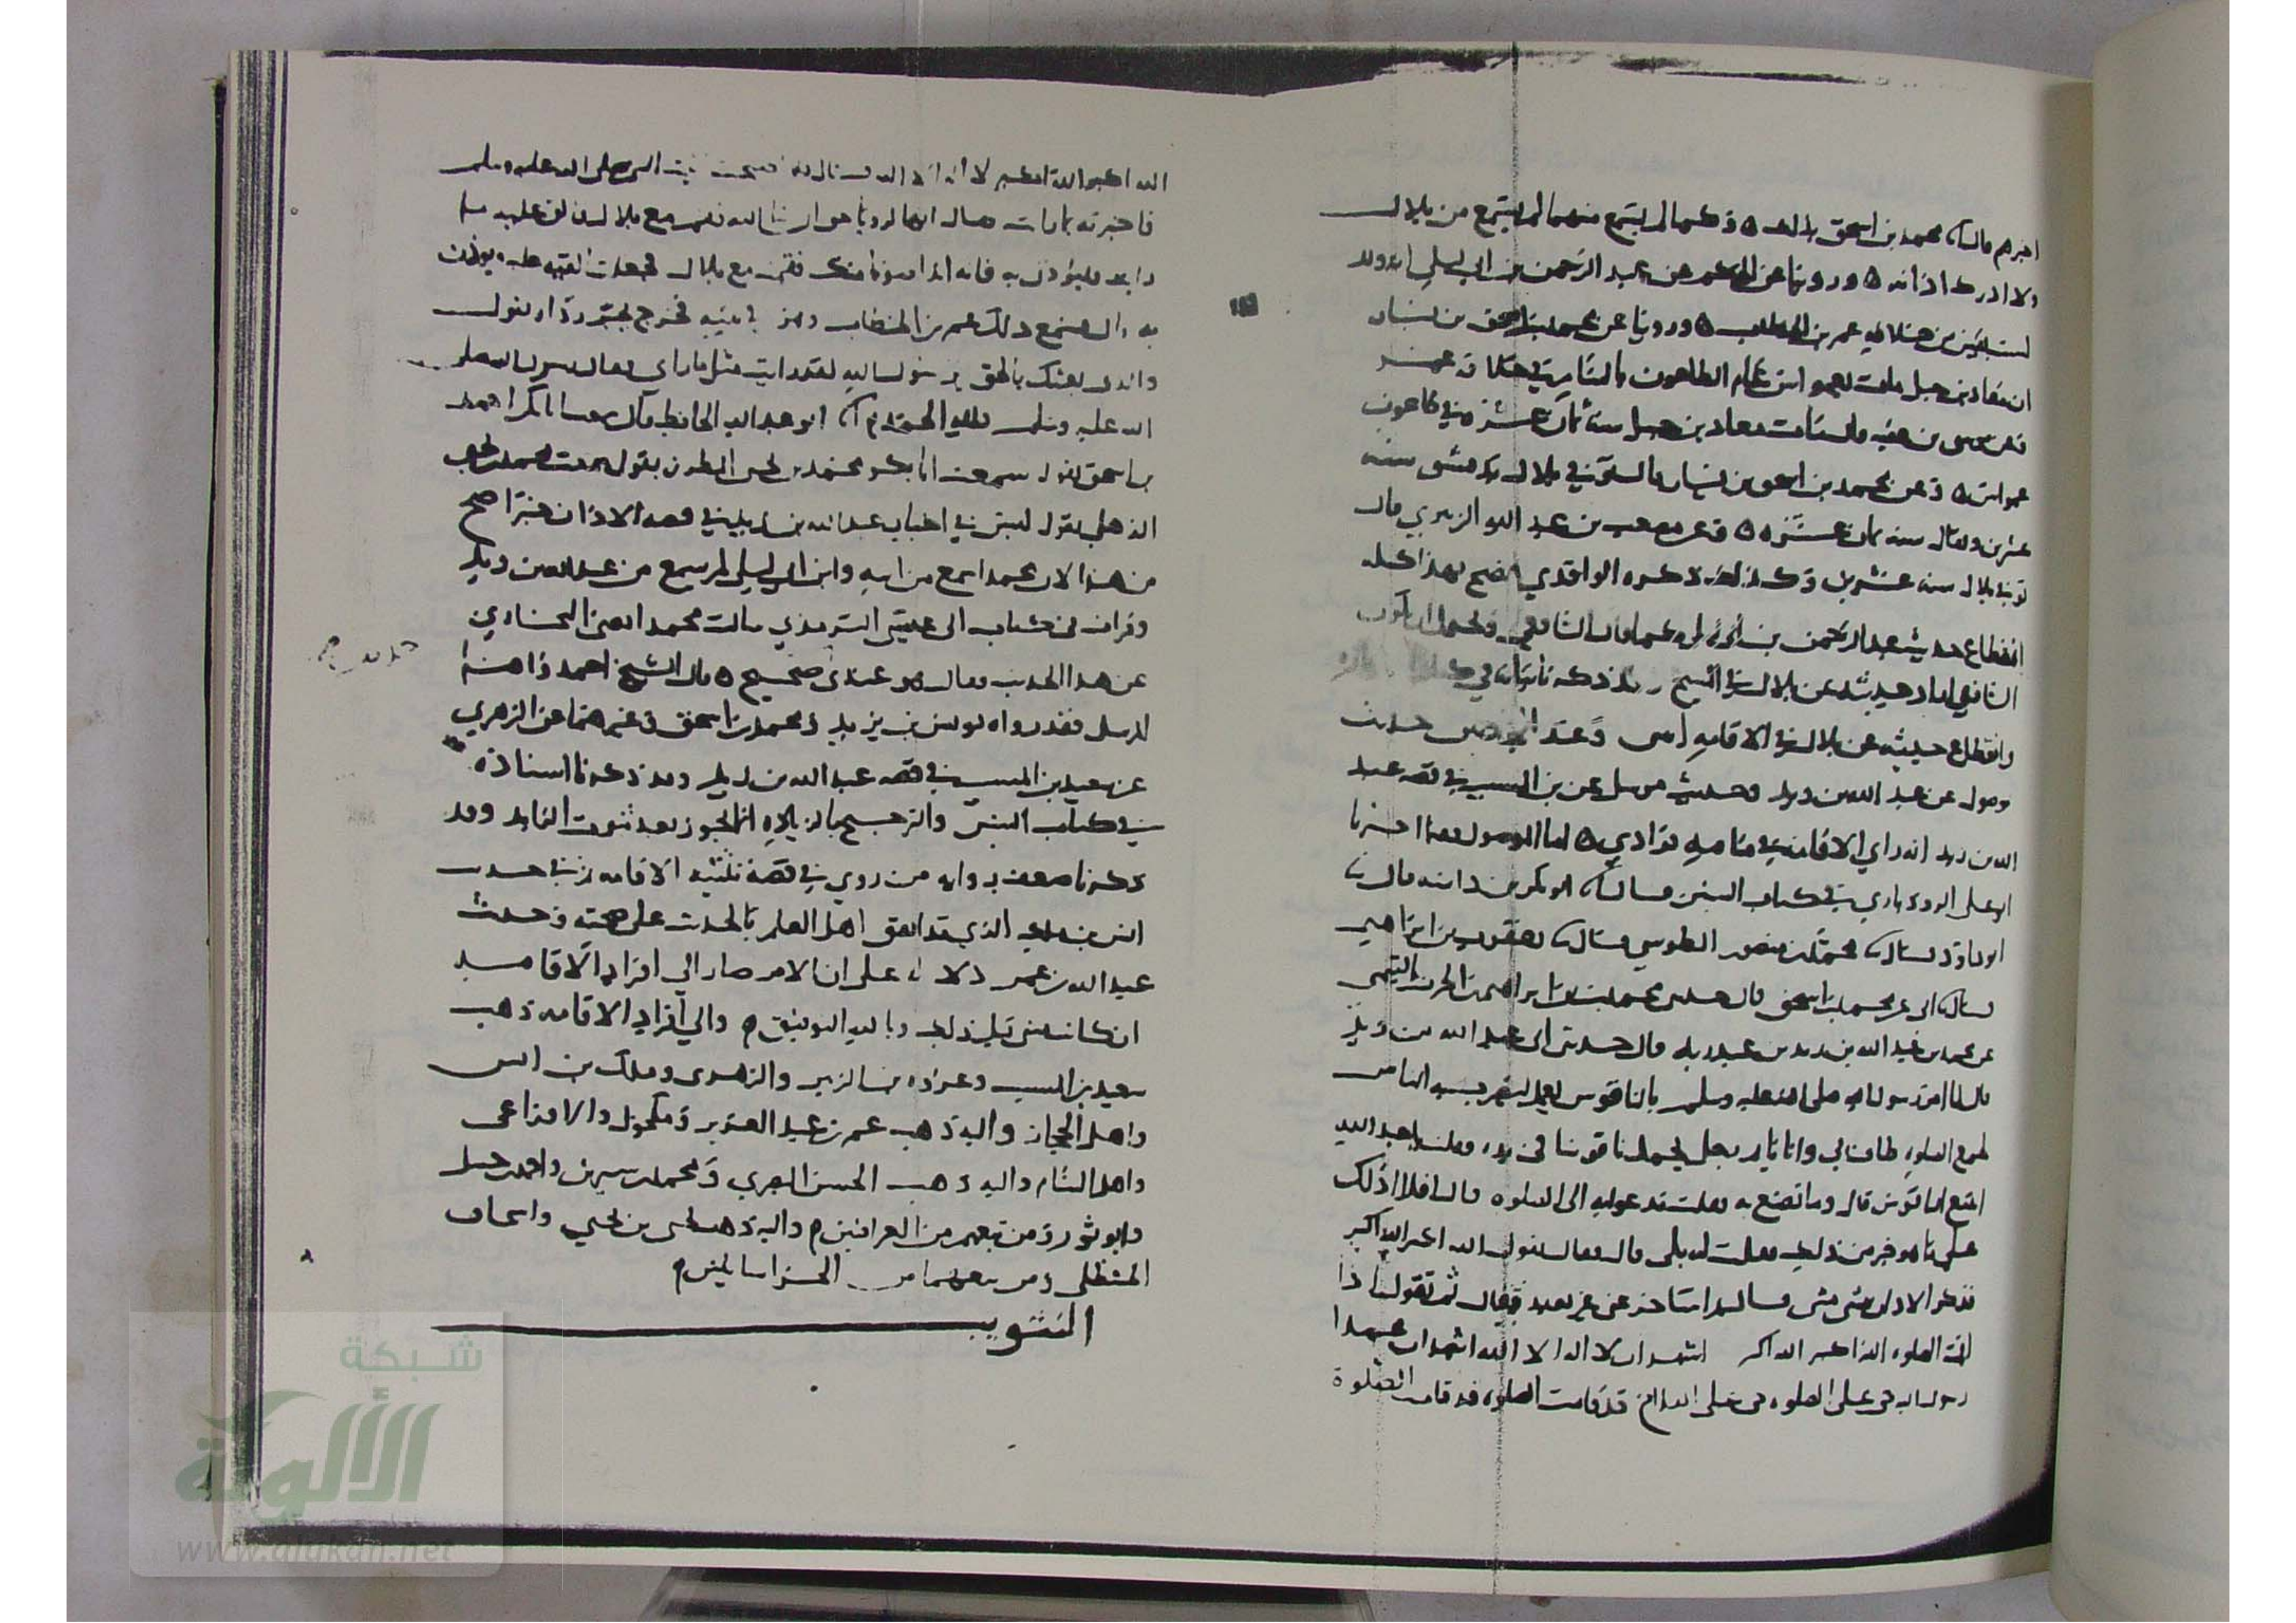 اخبرهم قال محمد بن اسحق بن خزيمة وكما لم يسمع منهما لم يسمع من بلال
ولا ادرك اذانه وروينا عن عبد الرحمن بن ابي ليلى انه ولد
لست بقين من خلافة عمر بن الخطاب وروينا عن محمد بن اسحق بن يسار
ان معاذ بن جبل مات بعمواس عام الطاعون بالشام في خلافة عمر
موسى بن عقبة قال مات معاذ بن جبل سنة ثمان عشرة في طاعون
عمواس وعن محمد بن اسحق بن يسار قال توفي بلال بدمشق سنة
عشرين ويقال سنة ثمان عشرة وعن مصعب بن عبد الله الزبيري قال
توفي بلال سنة عشرين وكذلك ذكره الواقدي فصح بهذا كله
انقطاع حديث عبد الرحمن بن ابي ليلى عنهما قال الشافعي
الشافعي اراد حديثه عن بلال في المسح وقد ذكرناه في كتاب
وانقطاع حديثه عن بلال في الاقامة مثنى وعند حديث
موصول عن عبد الله بن زيد وحديث مرسل عن بن المسيب في قصة عبد
الله بن زيد انه راى الاقامة في منامه فرادى اما الموصول اخبرنا
ابو علي الروذباري في كتاب السنن قال ابو بكر بن داسة قال
ابو داود قال محمد بن منصور الطوسي قال يعقوب بن ابراهيم
قال ابي عن محمد بن اسحق قال حدثني محمد بن ابراهيم بن الحرث التيمي
عن محمد بن عبد الله بن زيد بن عبد ربه قال حدثني ابي عبد الله بن زيد
قال لما امر رسول الله صلى الله عليه وسلم بالناقوس يعمل ليضرب به الناس
لجمع الصلوة طاف بي وانا نايم رجل يحمل ناقوسا في يده فقلت يا عبد الله
اتبيع الناقوس قال وما تصنع به فقلت ندعو به الى الصلوة قال افلا ادلك
على ما هو خير من ذلك فقلت له بلى قال فقال تقول الله اكبر الله اكبر
فذكر الاذان مثنى مثنى قال ثم استاخر عني غير بعيد فقال ثم تقول اذا
اقمت الصلوة الله اكبر الله اكبر اشهد ان لا اله الا الله اشهد ان محمدا
رسول الله حي على الصلوة حي على الفلاح قد قامت الصلوة قد قامت الصلوة
الله اكبر الله اكبر لا اله الا الله قال فلما اصبحت اتيت النبي صلى الله عليه وسلم
فاخبرته بما رايت فقال انها لرويا حق ان شا الله فقم مع بلال فالق عليه ما
رايت فليوذن به فانه اندا صوتا منك فقمت مع بلال فجعلت القيه عليه ويوذن
به قال فسمع ذلك عمر بن الخطاب وهو في بيته فخرج يجر رداه يقول
والذي بعثك بالحق يا رسول الله لقد رايت مثل ما راى فقال رسول الله صلى
الله عليه وسلم فلله الحمد ابو عبد الله الحافظ قال سمعت ابا بكر احمد
بن اسحق يقول سمعت ابا بكر محمد بن يحيى المطرز يقول سمعت محمد بن يحيى
الذهلي يقول ليس في اخبار عبد الله بن زيد في قصة الاذان خبرا اصح
من هذا لان محمدا سمع من ابيه وابن ابي ليلى لم يسمع من عبد الله بن زيد
وقرات في كتاب ابي عيسى الترمذي سالت محمدا يعني البخاري
عن هذا الحديث فقال هو عندي صحيح قال الشيخ احمد واما
المرسل فقد رواه يونس بن يزيد ومحمد بن اسحق وغيرهما عن الزهري
عن سعيد بن المسيب في قصة عبد الله بن زيد وقد ذكرنا اسناده
في كتاب السنن والترجيح بالزيادة انما يجوز بعد ثبوت الزيادة وقد
ذكرنا ضعف رواية من روى في قصة تثنية الاقامة في حديث
انس بن مالك الذي قد اتفق اهل العلم بالحديث على صحته وحديث
عبد الله بن عمر دلالة على ان الامر صار الى افراد الاقامة
ان كانت مثنى قبل ذلك وبالله التوفيق والى افراد الاقامة ذهب
سعيد بن المسيب وعروة بن الزبير والزهري وملك بن انس
واهل الحجاز واليه ذهب عمر بن عبد العزيز ومكحول والاوزاعي
واهل الشام واليه ذهب الحسن البصري ومحمد بن سيرين واحمد بن حنبل
وابو ثور ومن تبعهم من العراقيين واليه ذهب يحيى بن يحيى واسحاق
الحنظلي ومن تبعهما من الخراسانيين
التثويب
شبكة
الألوكة
www.alukah.net